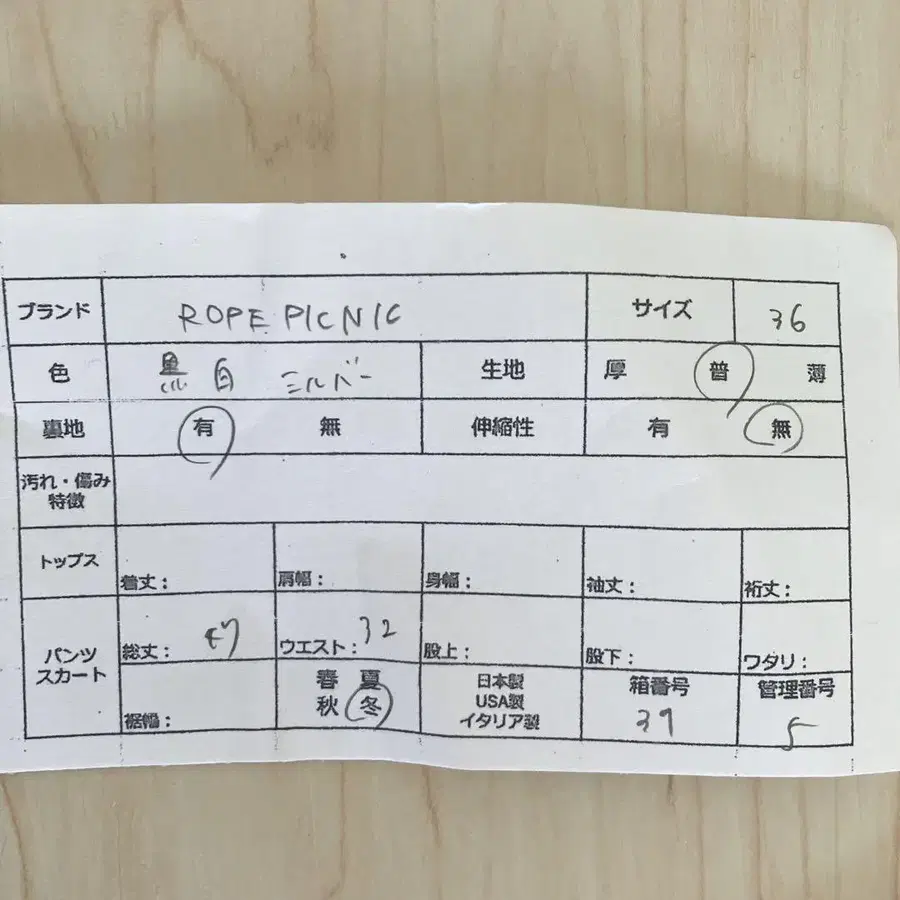 ブランド ROPE PICNIC サイズ 36
色 黒 白 シルバー 生地 厚 普 薄
裏地 有 無 伸縮性 有 無
汚れ・傷み
特徴
トップス 着丈： 肩幅： 身幅： 袖丈： 裄丈：
パンツ
スカート
総丈： ウエスト：32 股上： 股下： ワタリ：
裾幅：
春 夏
秋 冬
日本製
USA製
イタリア製
箱番号
39
管理番号
5